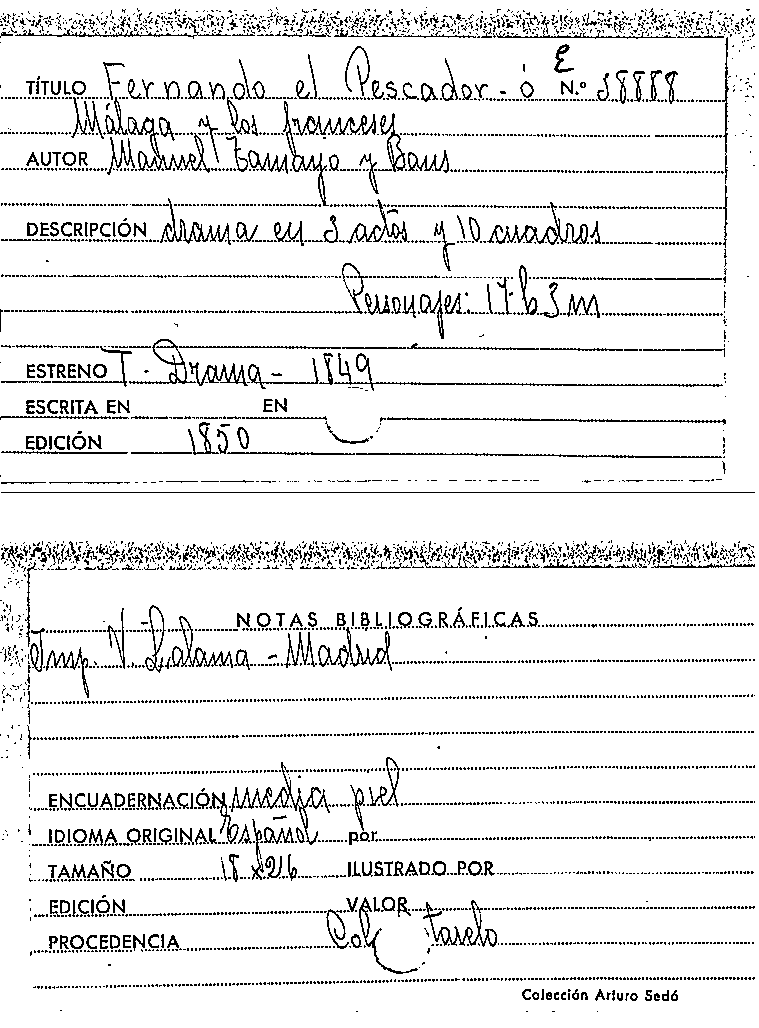 E
TÍTULO Fernando el Pescador - ó N.º 38888
Málaga y los franceses
AUTOR Manuel Tamayo y Baus
DESCRIPCIÓN drama en 3 actos y 10 cuadros
Personajes: 17 h 3 m
ESTRENO T. Drama - 1849
ESCRITA EN EN
EDICIÓN 1850
NOTAS BIBLIOGRÁFICAS
Imp. V. Lalama - Madrid
ENCUADERNACIÓN media piel
IDIOMA ORIGINAL Español por
TAMAÑO 18 x 26 ILUSTRADO POR
EDICIÓN VALOR
PROCEDENCIA Col
Colección Arturo Sedó